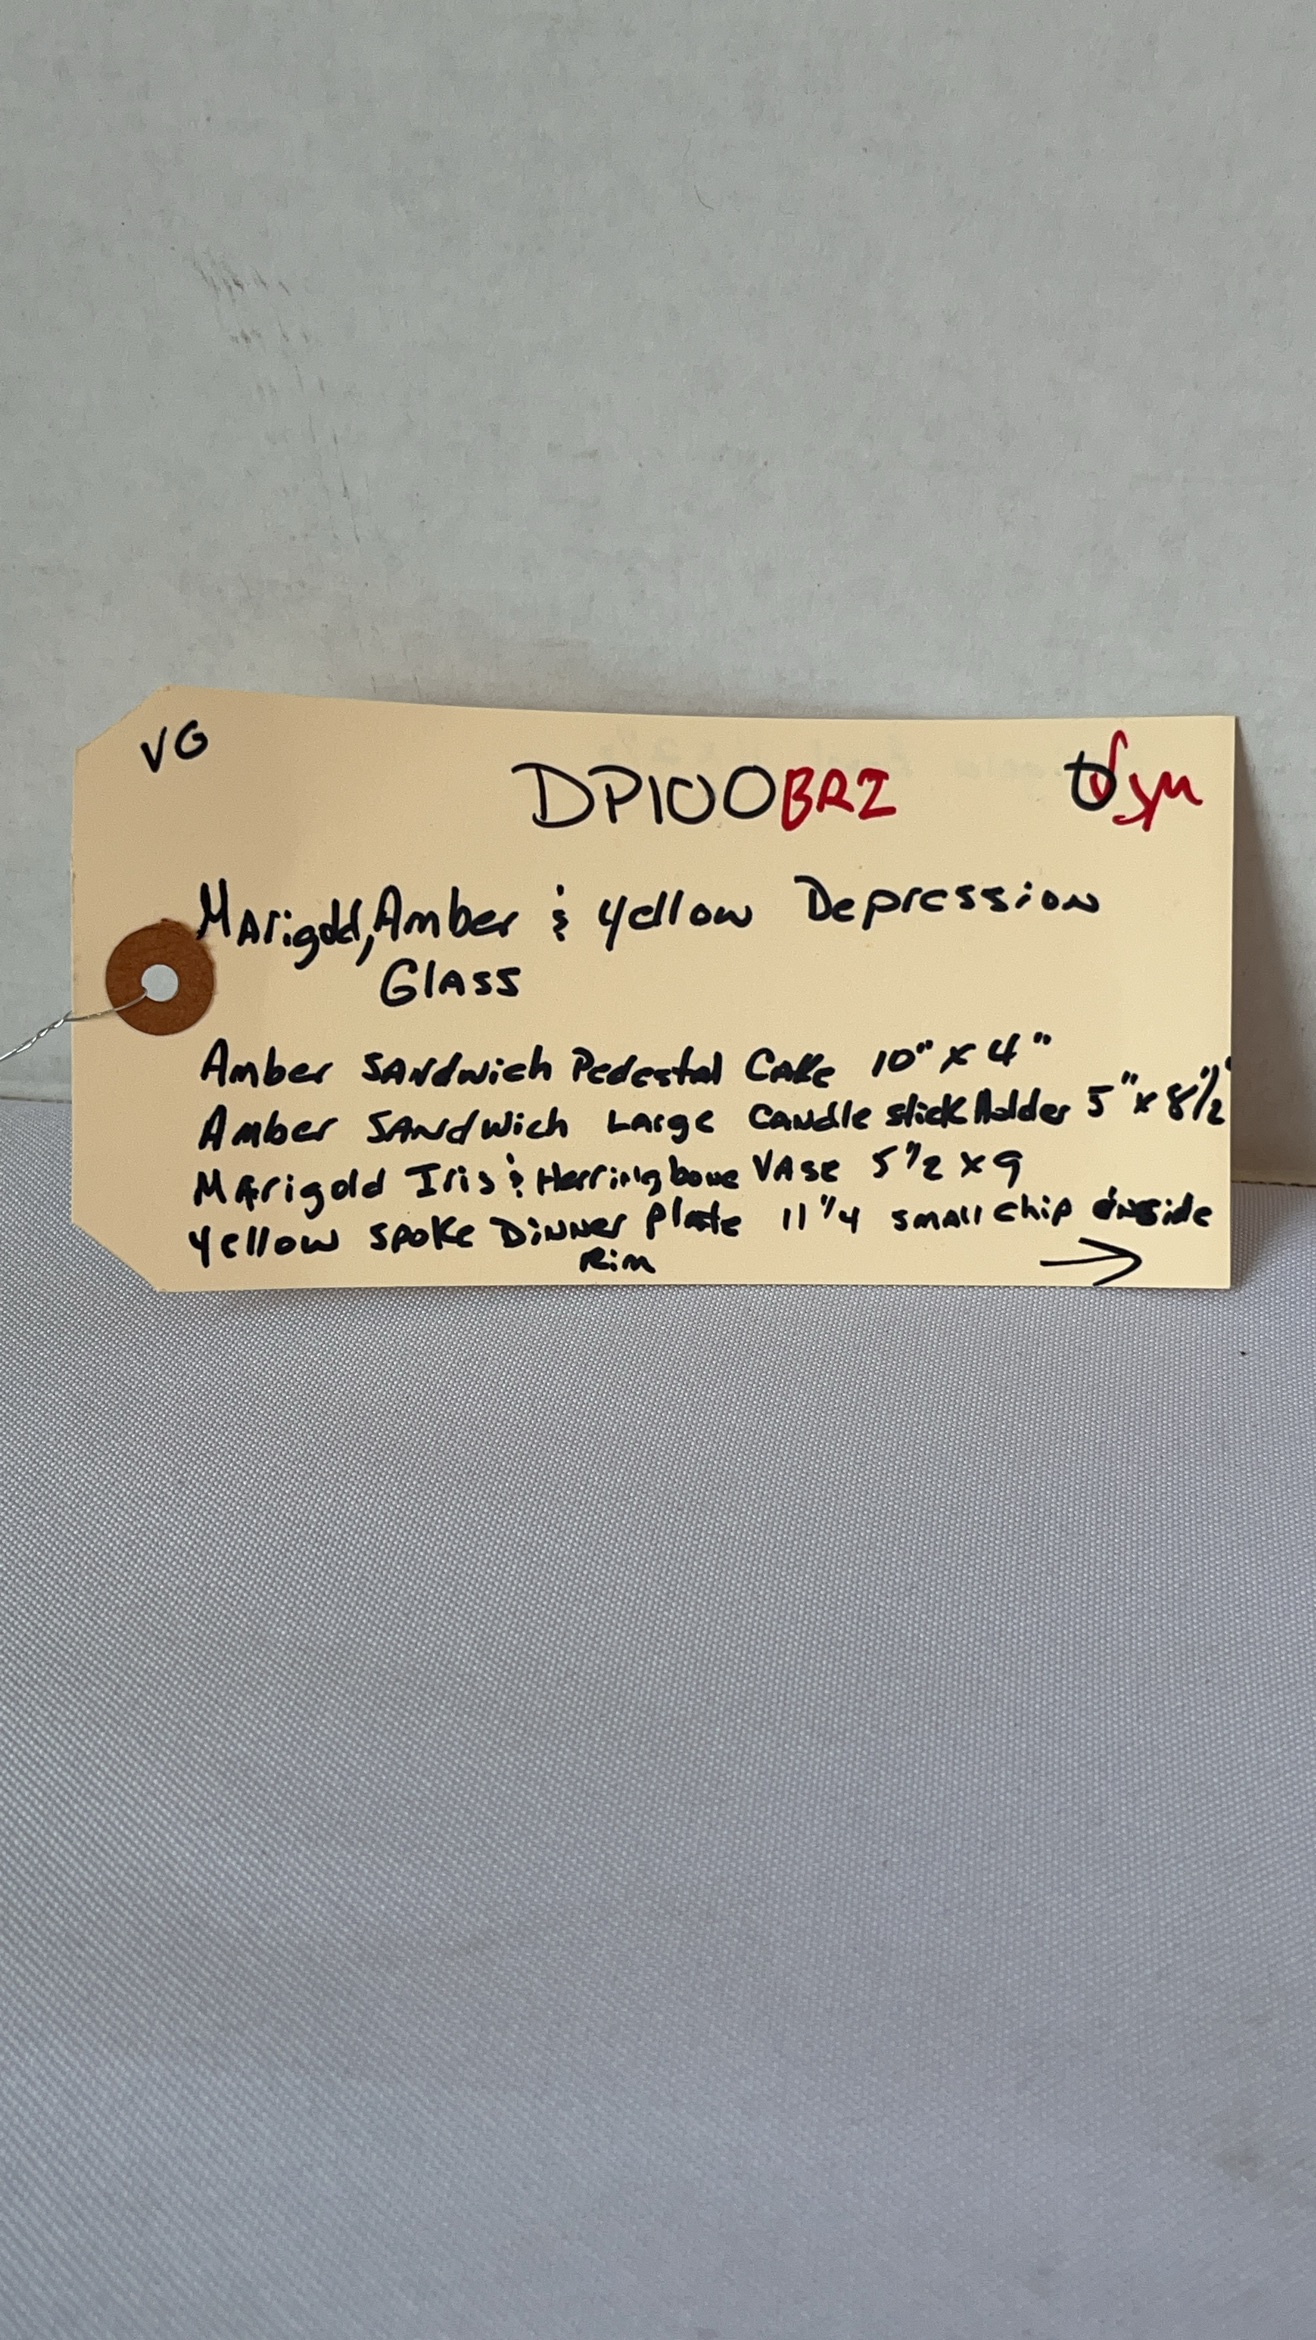 VG
DP100BRZ
Marigold, Amber & Yellow Depression
Glass
Amber Sandwich Pedestal Cake 10" x 4"
Amber Sandwich Large Candle stick Holder 5" x 8 1/2"
Marigold Iris & Herringbone Vase 5 1/2 x 9
Yellow Spoke Dinner Plate 11 1/4 small chip inside
Rim